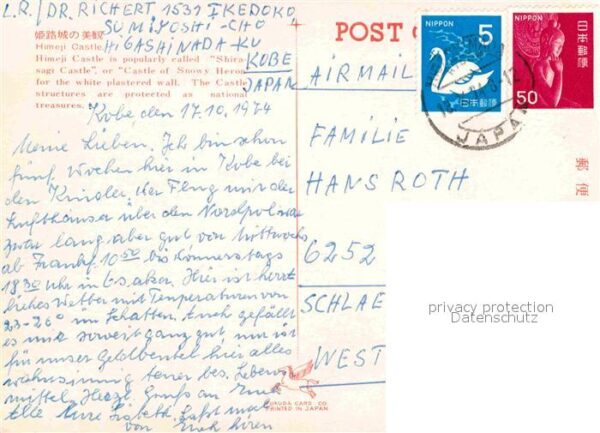 L.R./DR. RICHERT 1531 IKEDOKO
SUMIYOSHI-CHO 4
HIGASHINADA-KU
KOBE
JAPAN
姫路城の美観
Himeji Castle
Himeji Castle is popularly called "Shira-
sagi Castle", or "Castle of Snowy Heron"
for the white plastered wall. The Castle
structures are protected as national
treasures.
Kobe, den 17.10.1974
Meine Lieben. Ich bin schon
fünf Wochen hier in Kobe bei
den Kinder, der Flug mit der
Lufthansa über den Nordpol war
zwar lang aber gut von Mittwochs
ab Frankf. 10 50 bis Donnerstags
18 30 Uhr in Osaka. Hier ist herr
liches Wetter mit Temperaturen von
23-26° im Schatten. Auch gefällt
es mir soweit ganz gut, nur ist
für unser Geldbeutel hier alles
wahnsinnig teuer bes. Lebens
mittel. Herzl. Gruß an Euch
Alle Eure Lisbeth. Laßt mal
von Euch hören
POST C
AIRMAIL
FAMILIE
HANS ROTH
6252
SCHLAE
WEST
NIPPON
5
日本郵便
NIPPON
日本郵便
50
JAPAN
郵便
FUKUDA CARD CO.
PRINTED IN JAPAN
privacy protection
Datenschutz